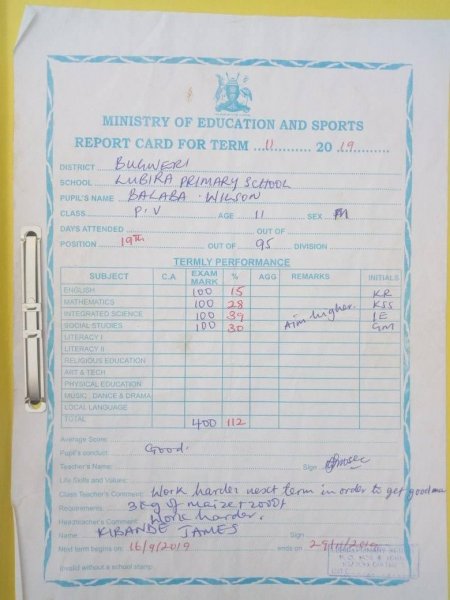 MINISTRY OF EDUCATION AND SPORTS
REPORT CARD FOR TERM 11 20 19
DISTRICT BUGWERI
SCHOOL LUBIRA PRIMARY SCHOOL
PUPIL'S NAME BALABA WILSON
CLASS P.V AGE 11 SEX M
DAYS ATTENDED OUT OF
POSITION 19TH OUT OF 95 DIVISION
TERMLY PERFORMANCE
SUBJECT C.A EXAM MARK % AGG REMARKS INITIALS
ENGLISH 100 15 KR
MATHEMATICS 100 28 KSS
INTEGRATED SCIENCE 100 39 Aim higher. IE
SOCIAL STUDIES 100 30 GM
LITERACY I
LITERACY II
RELIGIOUS EDUCATION
ART & TECH
PHYSICAL EDUCATION
MUSIC, DANCE & DRAMA
LOCAL LANGUAGE
TOTAL 400 112
Average Score:
Pupil's conduct Good.
Teacher's Name: Sign
Life Skills and Values:
Class Teacher's Comment Work harder next term in order to get good ma
Requirements 3kg of maize + 2000/=
Headteacher's Comment Work harder.
Name KIBANDE JAMES
Next term begins on 16/9/2019 ends on
Invalid without a school stamp.